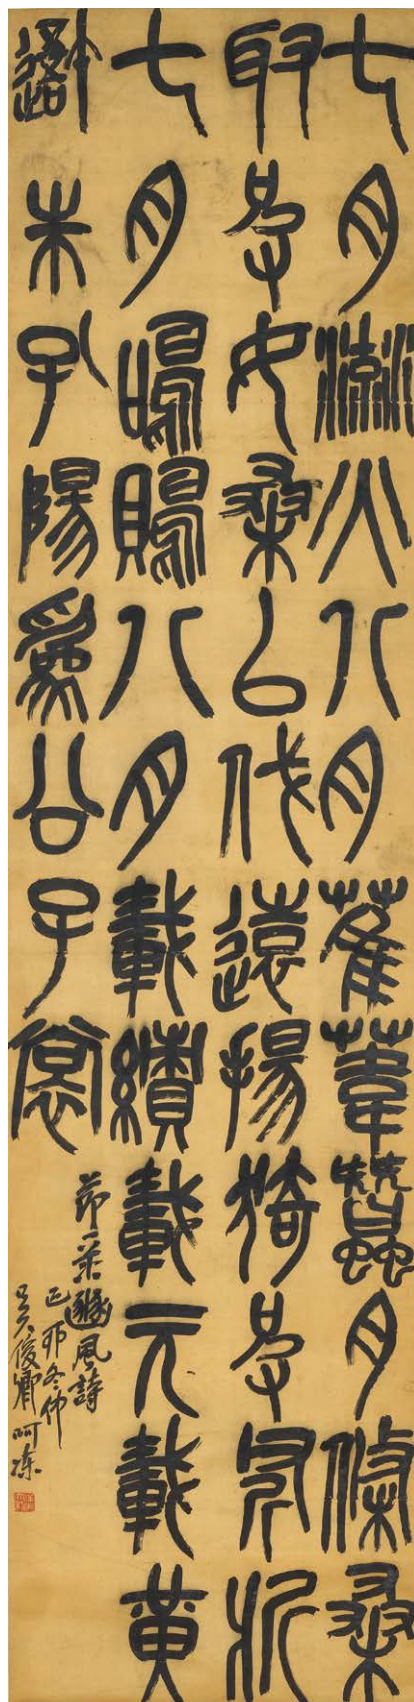 七月流火八月萑葦蠶月條桑
取彼女桑以伐遠揚猗彼斧斨
七月鳴鵙八月載績載元載黃
朱孔陽為公子裳
節豳風詩
乙卯冬仲
吳俊卿呵凍